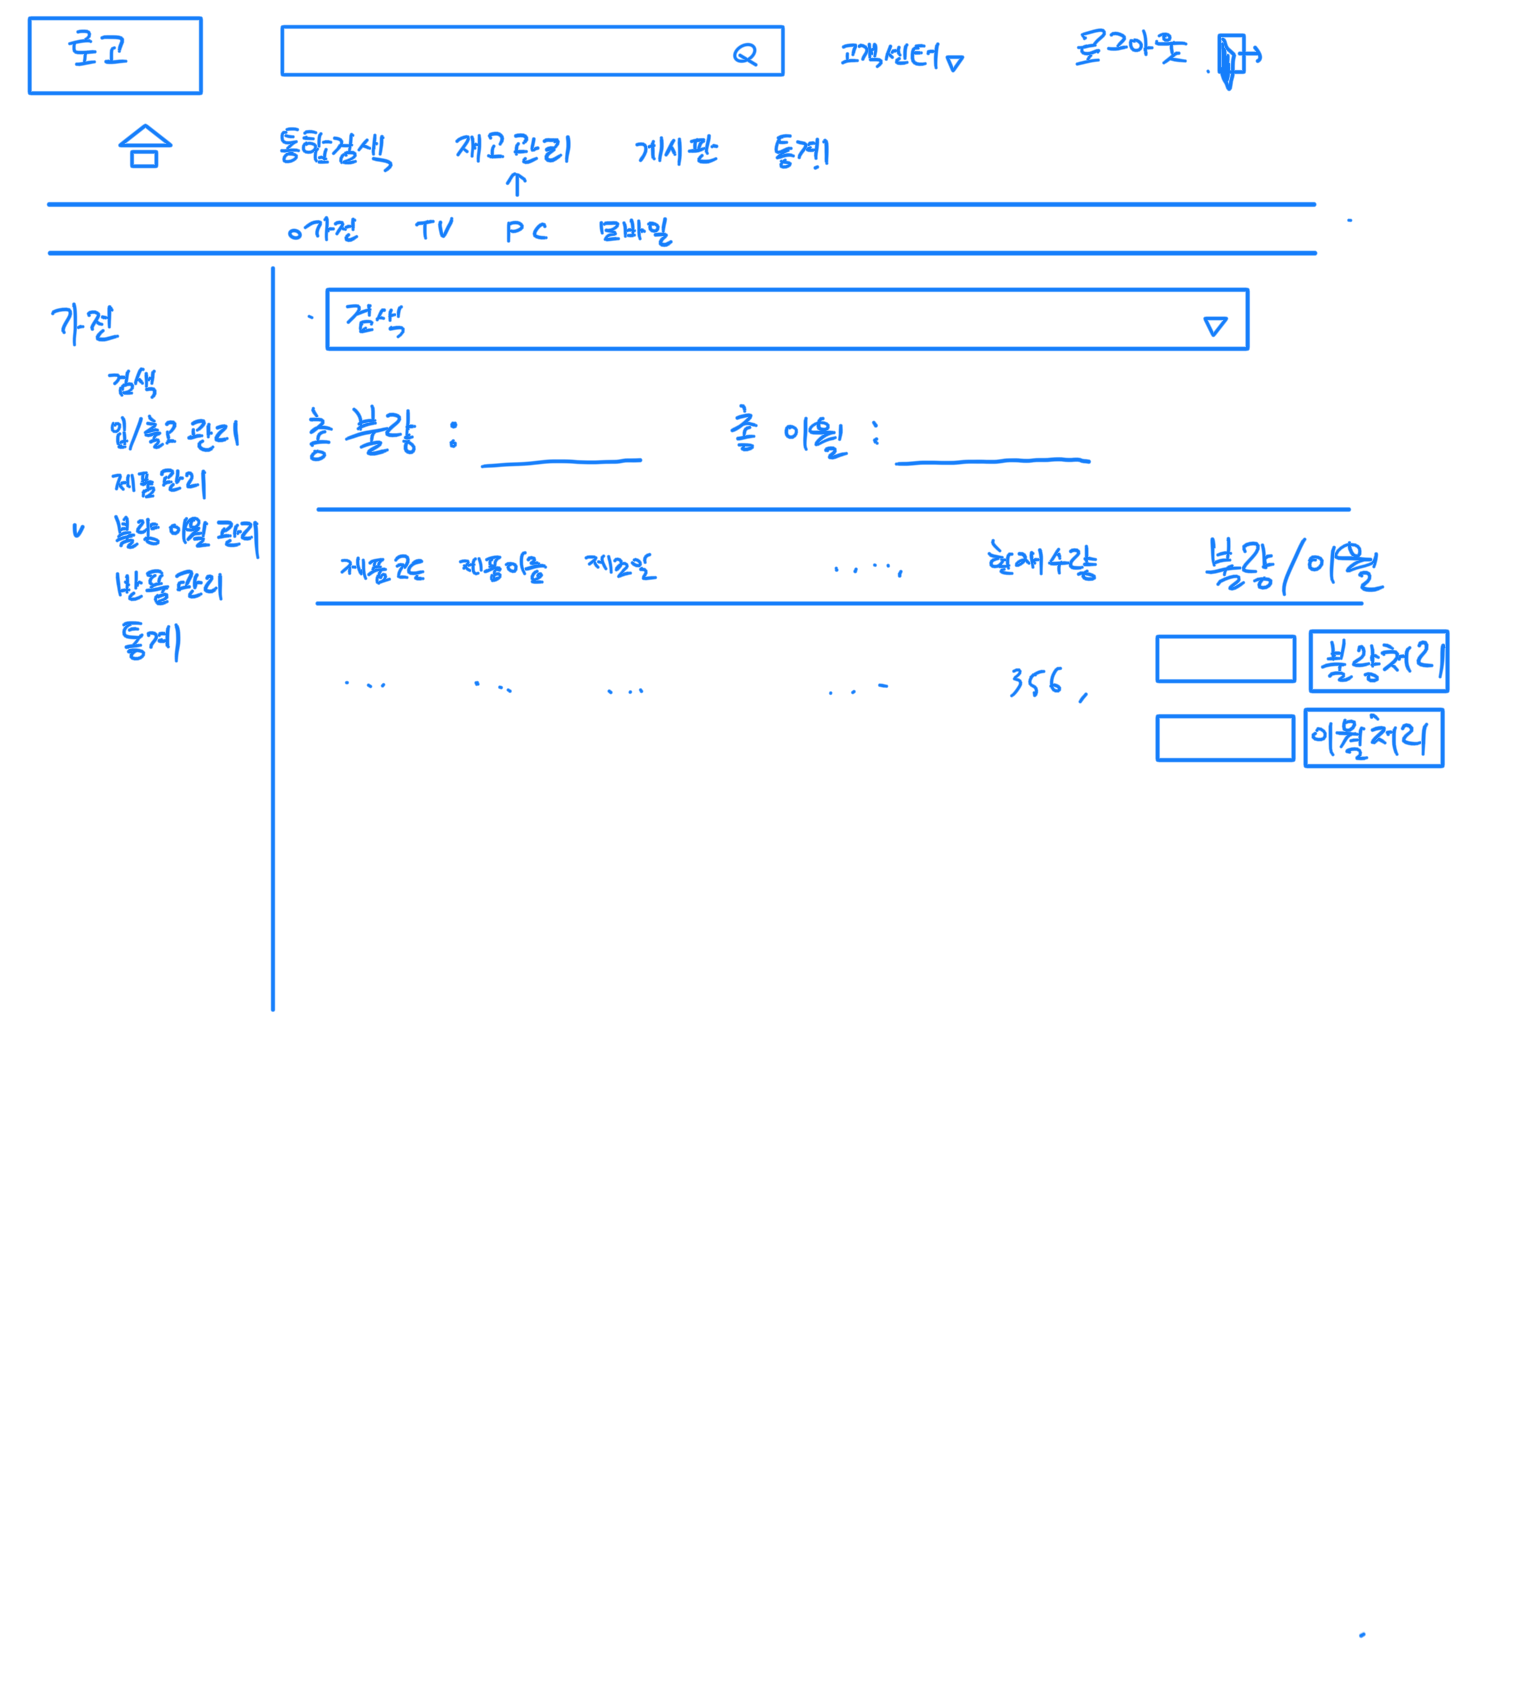 로고
고객센터
로그아웃
통합검색 재고관리 게시판 통계
가전 TV PC 모바일
가전
검색
검색
입/출고 관리
제품관리
불량 이월 관리
반품관리
통계
총 불량 :
총 이월 :
제품코드 제품이름 제조일 ..... 현재수량 불량/이월
... ... ... ... 356,
불량처리
이월처리